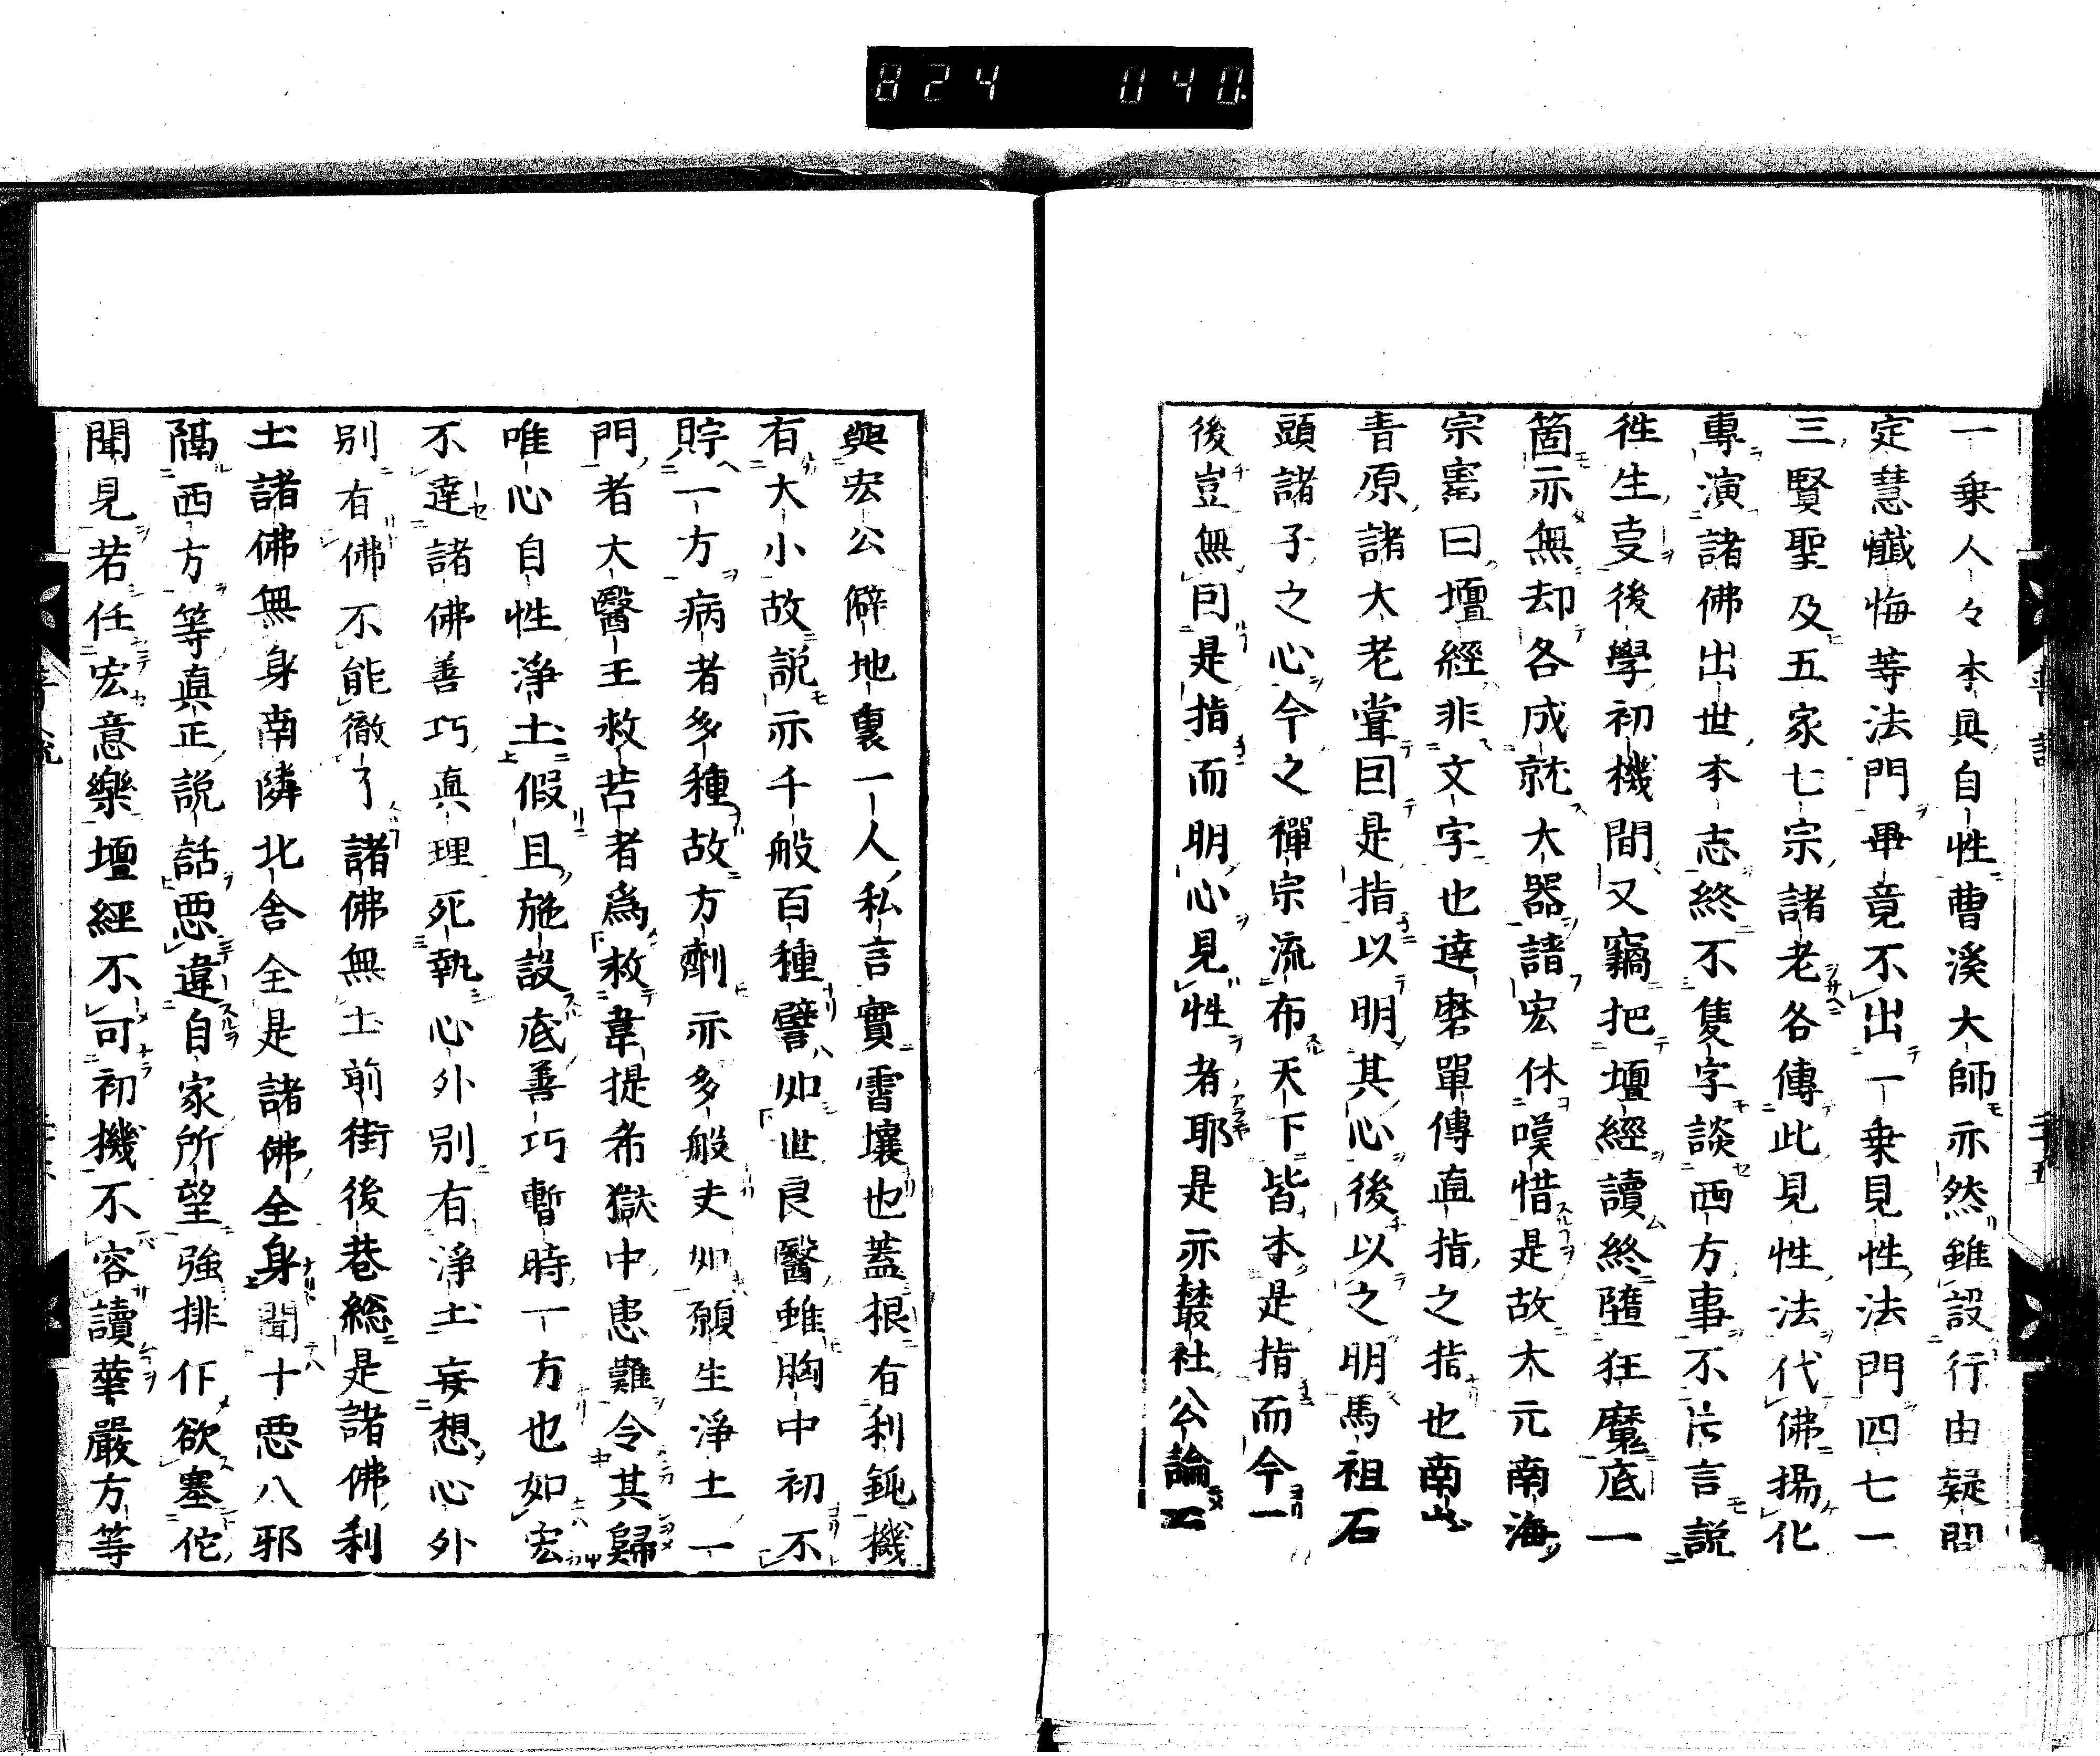 824 040
一乗人々本具自性曹溪大師亦然雖設行由疑問
定慧懺悔等法門畢竟不出一乗見性法門四七一
三賢聖及五家七宗諸老各傳此見性法代佛揚化
專演諸佛出世本志終不隻字談西方事不片言説
徃生叓後學初機間又竊把壇經讀終墮狂魔底一
箇亦無却各成就大器諸宏休嘆惜是故大元南海
宗寳曰壇經非文字也達磨單傳直指之指也南岳
青原諸大老甞因是指以明其心後以之明馬祖石
頭諸子之心今之禪宗流布天下皆本是指而今一
後豈無因是指而明心見性者耶是亦叢社公論云
與宏公僻地裏一人私言實霄壤也蓋根有利鈍機
有大小故説亦千般百種譬如世良醫雖胸中初不
貯一方病者多種故方劑亦多般夫如願生淨土一
門者大醫王救苦者爲救韋提希獄中患難令其歸
唯心自性淨土假且施設底善巧暫時一方也如宏
不達諸佛善巧眞理死執心外別有淨土妄想心外
別有佛不能徹了諸佛無土前街後巷総是諸佛利
土諸佛無身南隣北舎全是諸佛全身聞十悪八邪
隔西方等眞正説話悪違自家所望強排仆欲塞佗
聞見若任宏意樂壇經不可初機不容讀華嚴方等